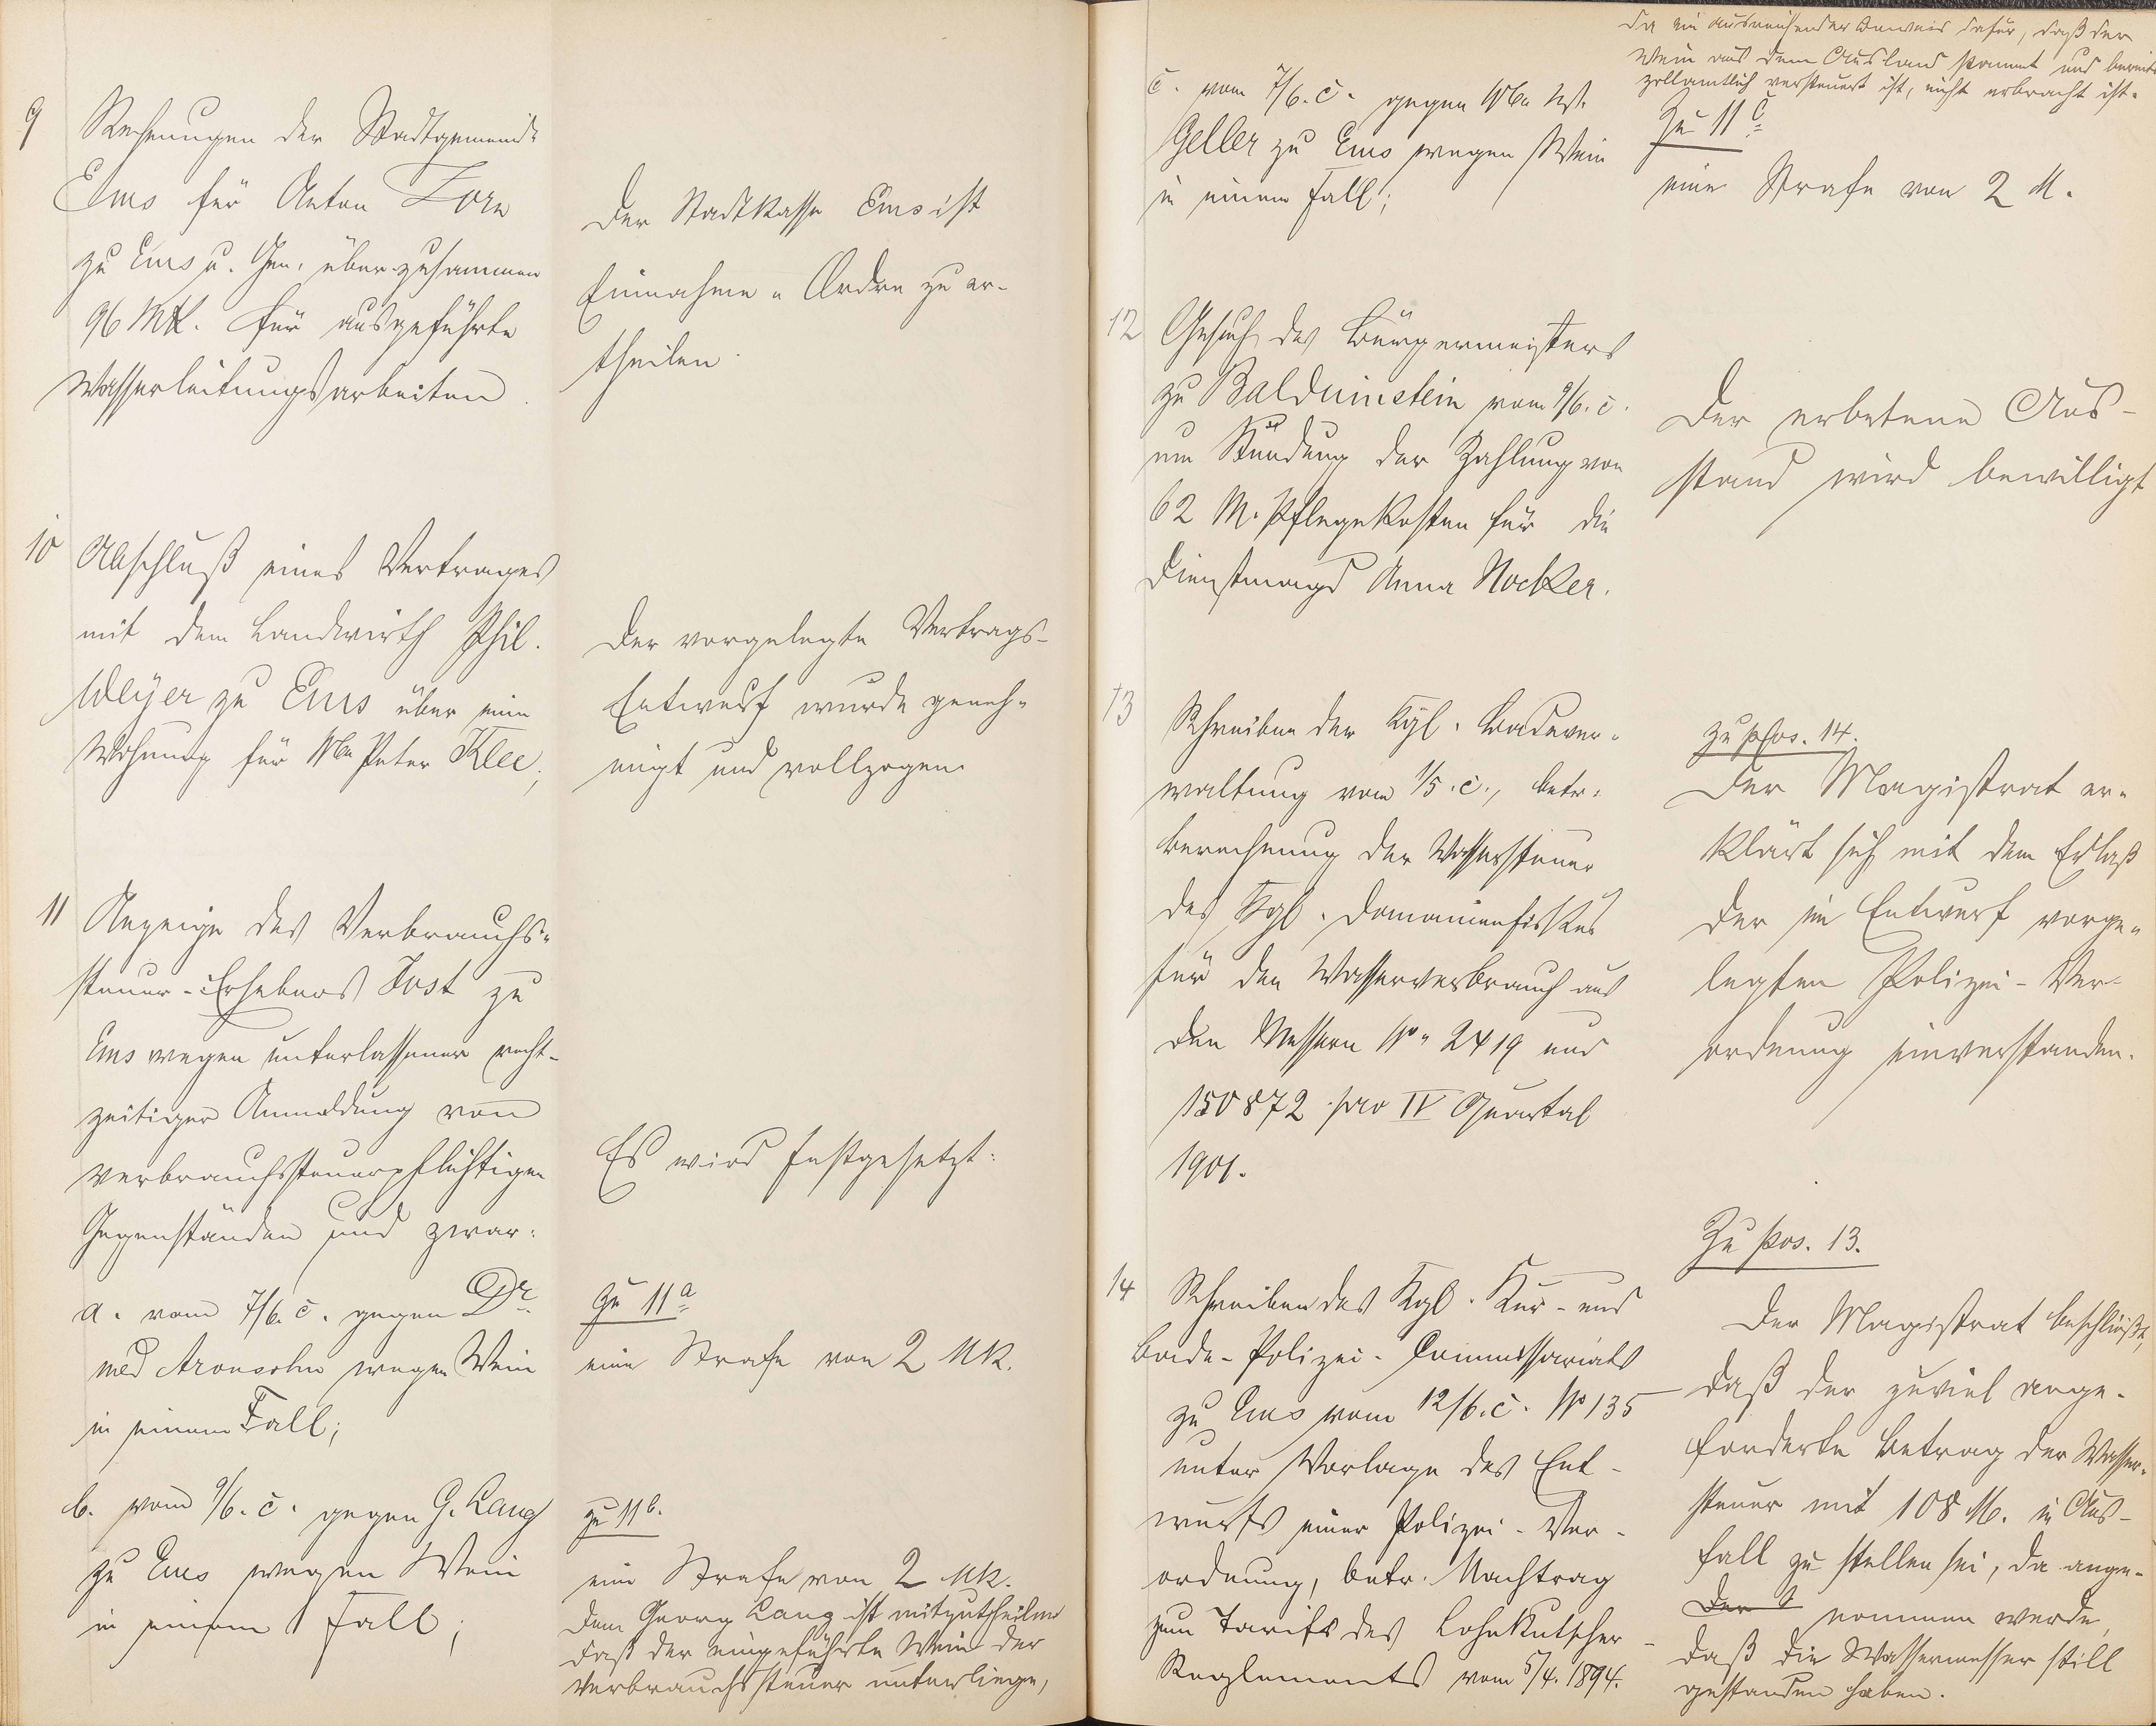 9 Rechnungen der Stadtgemeinde
Ems für Anton Zorn
zu Ems u. Gen. über zusammen
96 Mk. für ausgeführte
Wasserleitungsarbeiten.
Der Stadtkasse Ems ist
Einnahme-Ordre zu er-
theilen.
10 Abschluß eines Vertrages
mit dem Landwirth Phil.
Weyer zu Ems über eine
Wohnung für Wwe Peter Klee;
Der vorgelegte Vertrags-
Entwurf wurde geneh-
migt und vollzogen.
11 Anzeige des Verbrauchs-
steuer-Erhebers Jost zu
Ems wegen unterlassener recht-
zeitiger Anmeldung von
verbrauchssteuerpflichtigen
Gegenständen und zwar:
a. vom 7/6. c. gegen Dr.
med Aronsohn wegen Wein
in einem Fall;
b. vom 9/6. c. gegen G. Lang
zu Ems wegen Wein
in einem Fall;
Es wird festgesetzt:
Zu 11a
eine Strafe von 2 Mk.
zu 11b.
eine Strafe von 2 Mk.
Dem Georg Lang ist mitzutheilen
daß der eingeführte Wein der
Verbrauchssteuer unterliege,
c. vom 7/6. c. gegen Wwe
Geller zu Ems wegen Wein
in einem Fall;
da ein ausreichender Beweis dafür, daß der
Wein aus dem Ausland stammt und bereits
zollamtlich versteuert ist, nicht erbracht ist.
Zu 11c
eine Strafe von 2 M.
12 Gesuch des Bürgermeisters
zu Balduinstein vom 9/6. c.
um Stundung der Zahlung von
62 M. Pflegekosten für die
Dienstmagd Anna Nocker.
Der erbetene Aus-
stand wird bewilligt
13 Schreiben der Kgl. Badever-
waltung vom 1/5. c., betr.
Berechnung der Wassersteuer
des Kgl. Domänenfiskus
für den Wasserverbrauch aus
den Messern No. 2419 und
150872 pro IV Quartal
1901.
zu pos. 14.
Der Magistrat er-
klärt sich mit dem Erlaß
der im Entwurf vorge-
legten Polizei-Ver-
ordnung einverstanden.
14 Schreiben des Kgl. Kur- und
Bade-Polizei-Commissariats
zu Ems vom 12/6. c. No 135
unter Vorlage des Ent-
wurfs einer Polizei-Ver-
ordnung, betr. Nachtrag
zum Tarife des Lohnkutscher-
Reglements vom 5/4. 1894.
Zu pos. 13.
Der Magistrat beschließt,
daß der zuviel ange-
forderte Betrag der Wasser-
steuer mit 108 M. in Aus-
fall zu stellen sei, da ange-
Der nommen werde,
daß die Wassermesser still
gestanden haben.